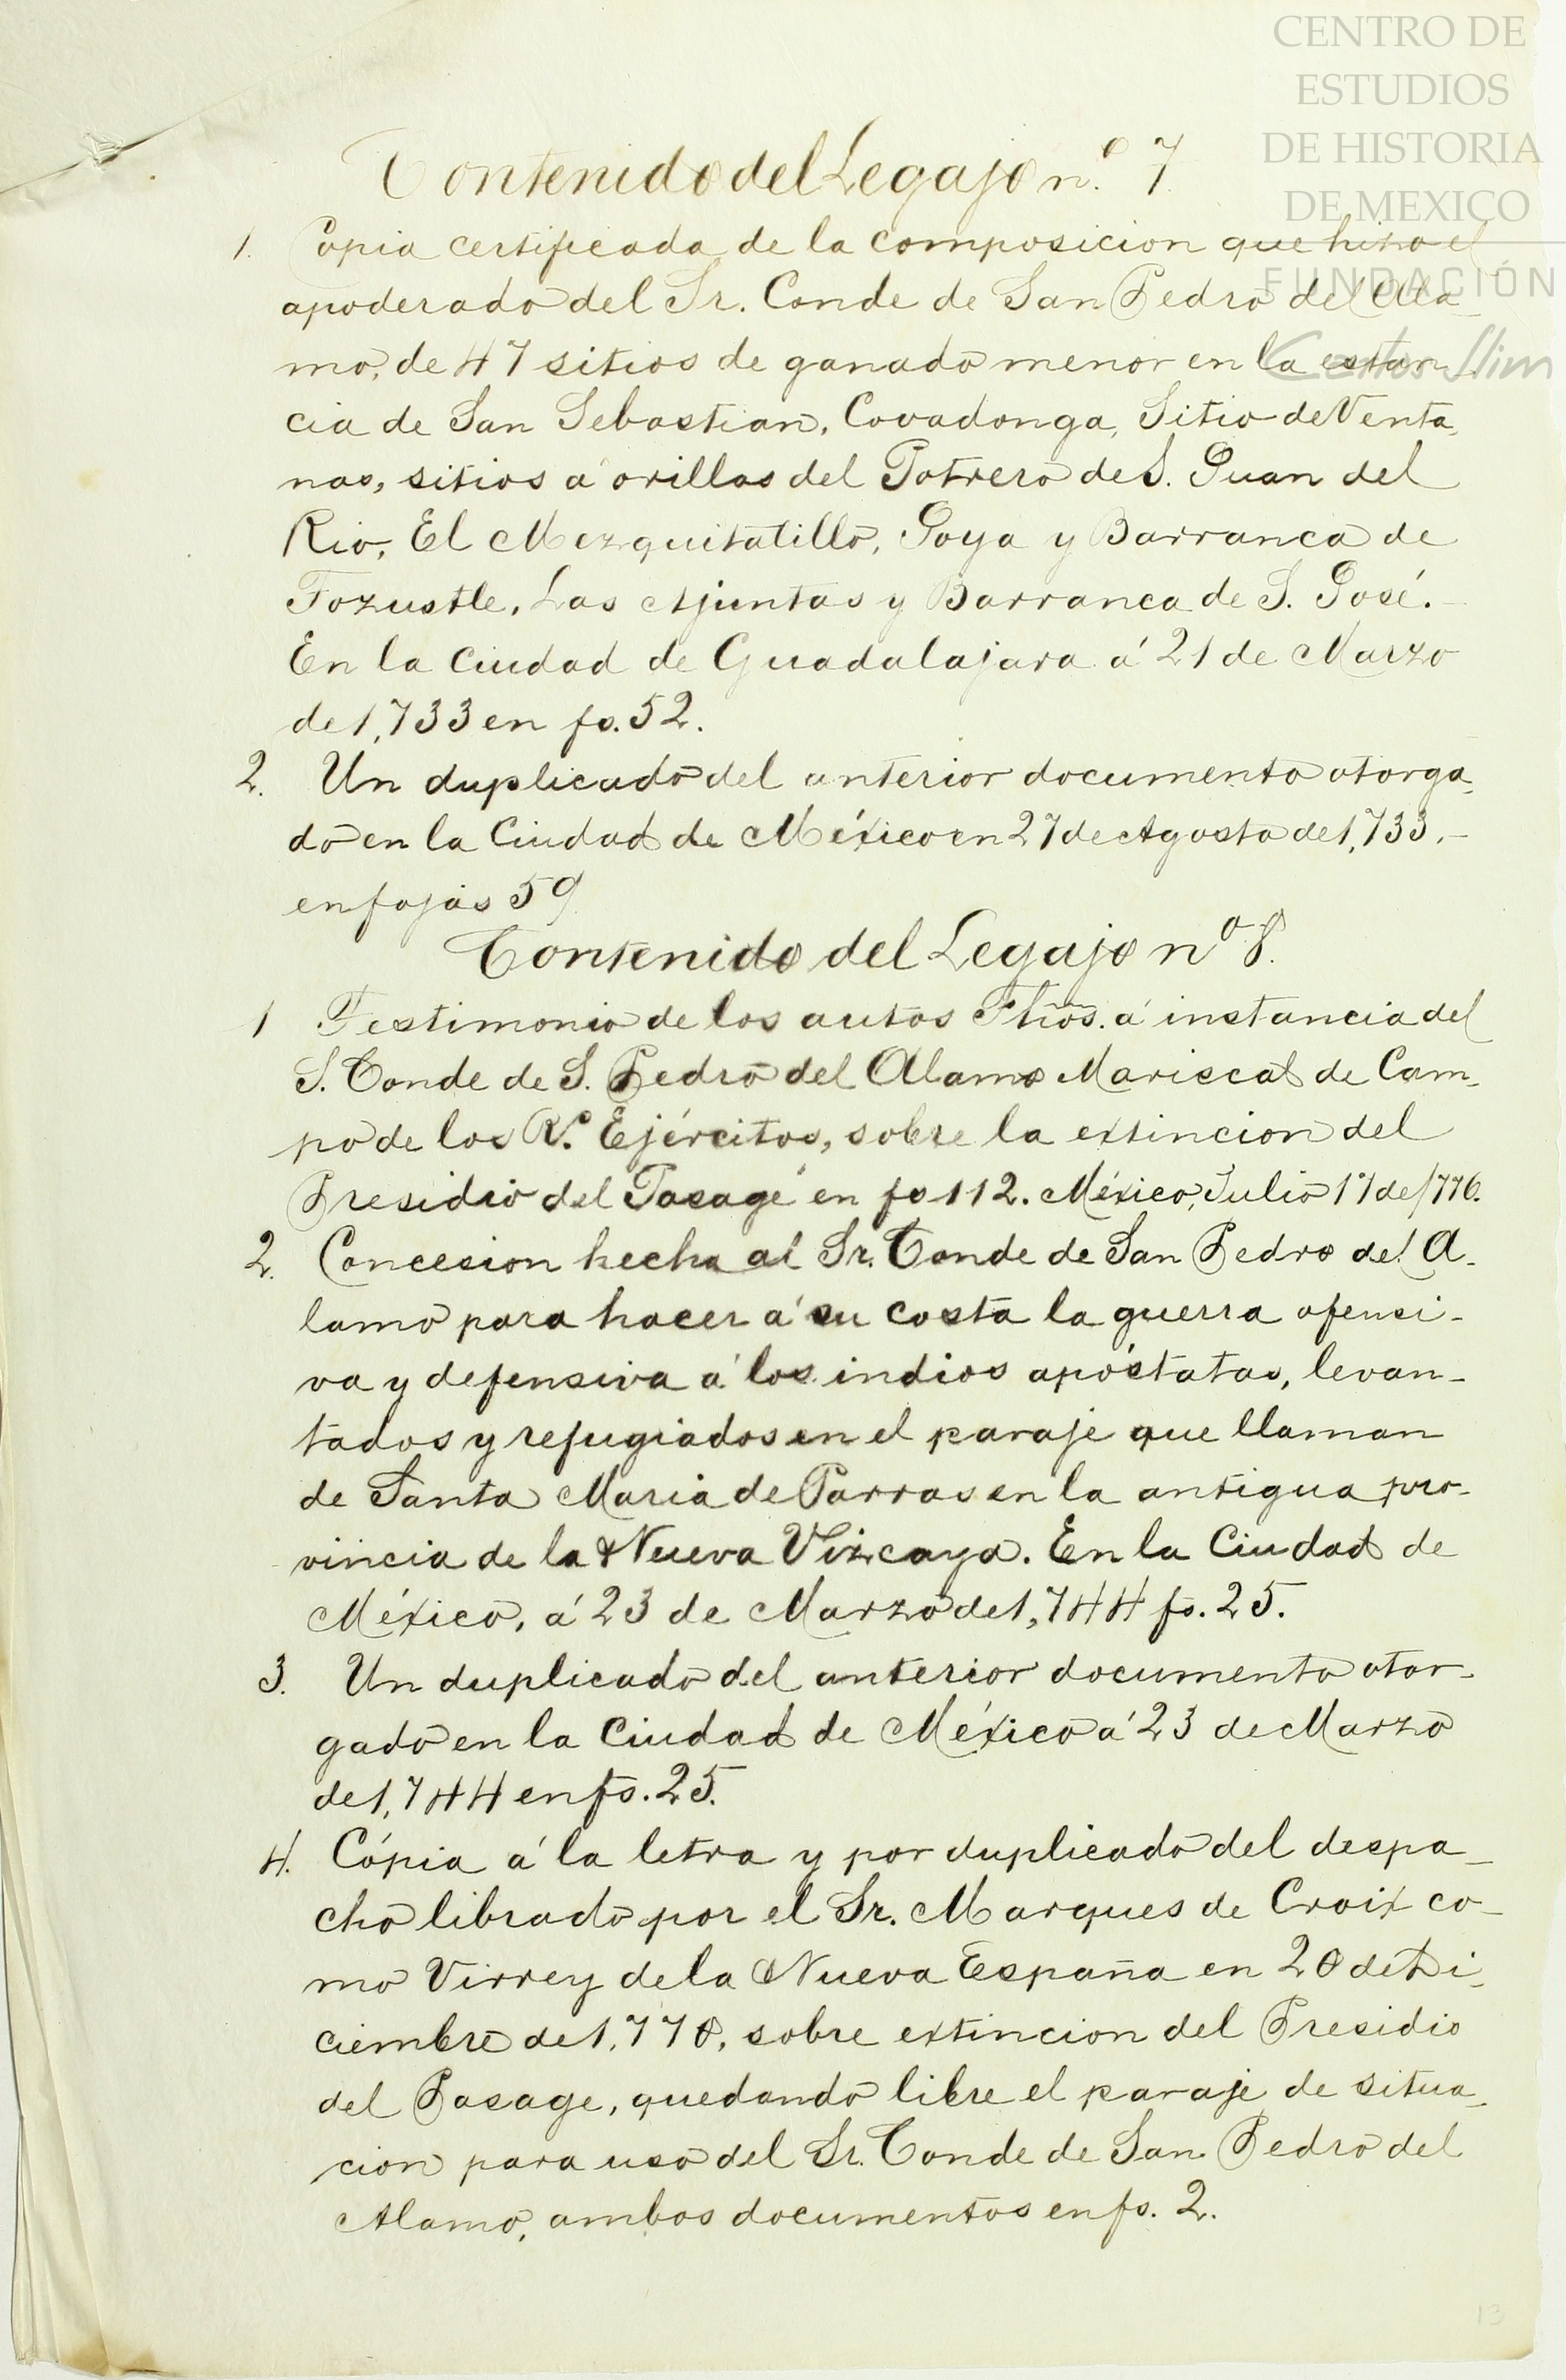 CENTRO DE
ESTUDIOS
DE HISTORIA
DE MEXICO
FUNDACIÓN
Carlos Slim
Contenido del Legajo n.º 7.
1. Copia certificada de la composicion que hizo el
apoderado del Sr. Conde de San Pedro del Ala-
mo, de 47 sitios de ganado menor en la estan-
cia de San Sebastian, Covadonga, Sitio de Venta-
nas, sitios á orillas del Potrero de S. Juan del
Rio, El Mezquitatillo, Joya y Barranca de
Tozustle, Las Ajuntas y Barranca de S. José.-
En la Ciudad de Guadalajara á 21 de Marzo
de 1,733 en fs. 52.
2. Un duplicado del anterior documento otorga-
do en la Ciudad de México en 27 de Agosto de 1,733.-
en fojas 59.
Contenido del Legajo nº 8.
1 Testimonio de los autos Fhos. á instancia del
S. Conde de S. Pedro del Alamo Mariscal de Cam-
po de los Rs. Ejércitos, sobre la extincion del
Presidio del Pasage en fs 112. México, Julio 17 de 1776.
2. Concesion hecha al Sr. Conde de San Pedro del A-
lamo para hacer á su costa la guerra ofensi-
va y defensiva á los indios apóstatas, levan-
tados y refugiados en el paraje que llaman
de Santa Maria de Parras en la antigua pro-
vincia de la Nueva Vizcaya. En la Ciudad de
México, á 23 de Marzo de 1,744 fs. 25.
3. Un duplicado del anterior documento otor-
gado en la Ciudad de México á 23 de Marzo
de 1,744 en fs. 25.
4. Cópia á la letra y por duplicado del despa-
cho librado por el Sr. Marques de Croix co-
mo Virrey de la Nueva España en 20 de Di-
ciembre de 1,770, sobre extincion del Presidio
del Pasage, quedando libre el paraje de situa-
cion para uso del Sr. Conde de San Pedro del
Alamo, ambos documentos en fs. 2.
13